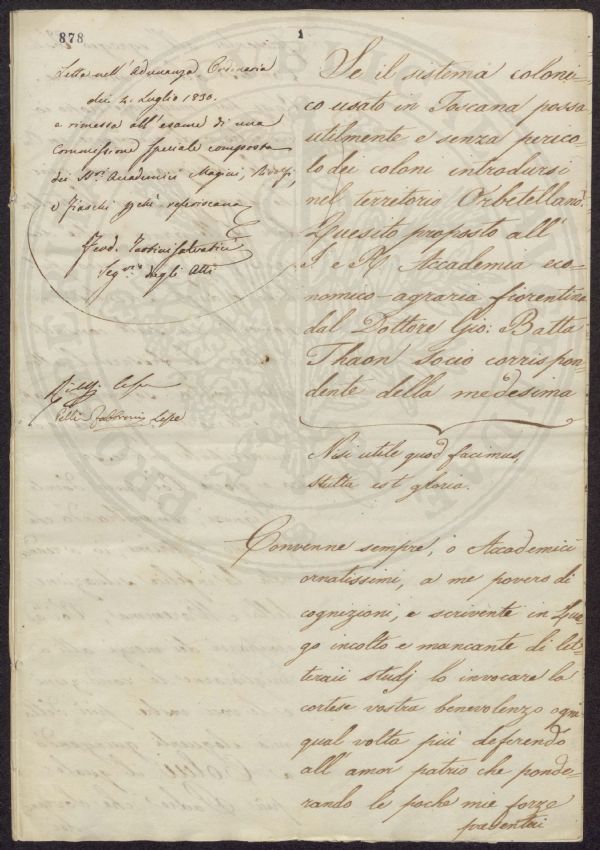 878
1
Letta nell' Adunanza Ordinaria
dei 2. Luglio 1830.
e rimessa all' esame di una
Commissione speciale composta
dei Sri. Accademici Magini, Ridolfi,
e Fiaschi perchè referiscano
Ferd. Tartini Salvatici
Segrio. degli Atti
Ridolfi lesse
Pelli Fabbroni Lesse
Se il sistema coloni-
co usato in Toscana possa
utilmente e senza perico-
lo dei coloni introdursi
nel territorio Orbetellano.
Quesito proposto all'
I. e R. Accademia eco-
nomico-agraria fiorentina
dal Dottore Gio: Batta
Thaon socio corrispon-
dente della medesima
Nisi utile quod facimus,
stulta est gloria.
Convenne sempre, o Accademici
ornatissimi, a me povero di
cognizioni, e scrivente in Luo-
go incolto e mancante di let-
terarii studj lo invocare la
cortese vostra benevolenza ogni
qual volta più deferendo
all' amor patrio che ponde-
rando le poche mie forze
presentai